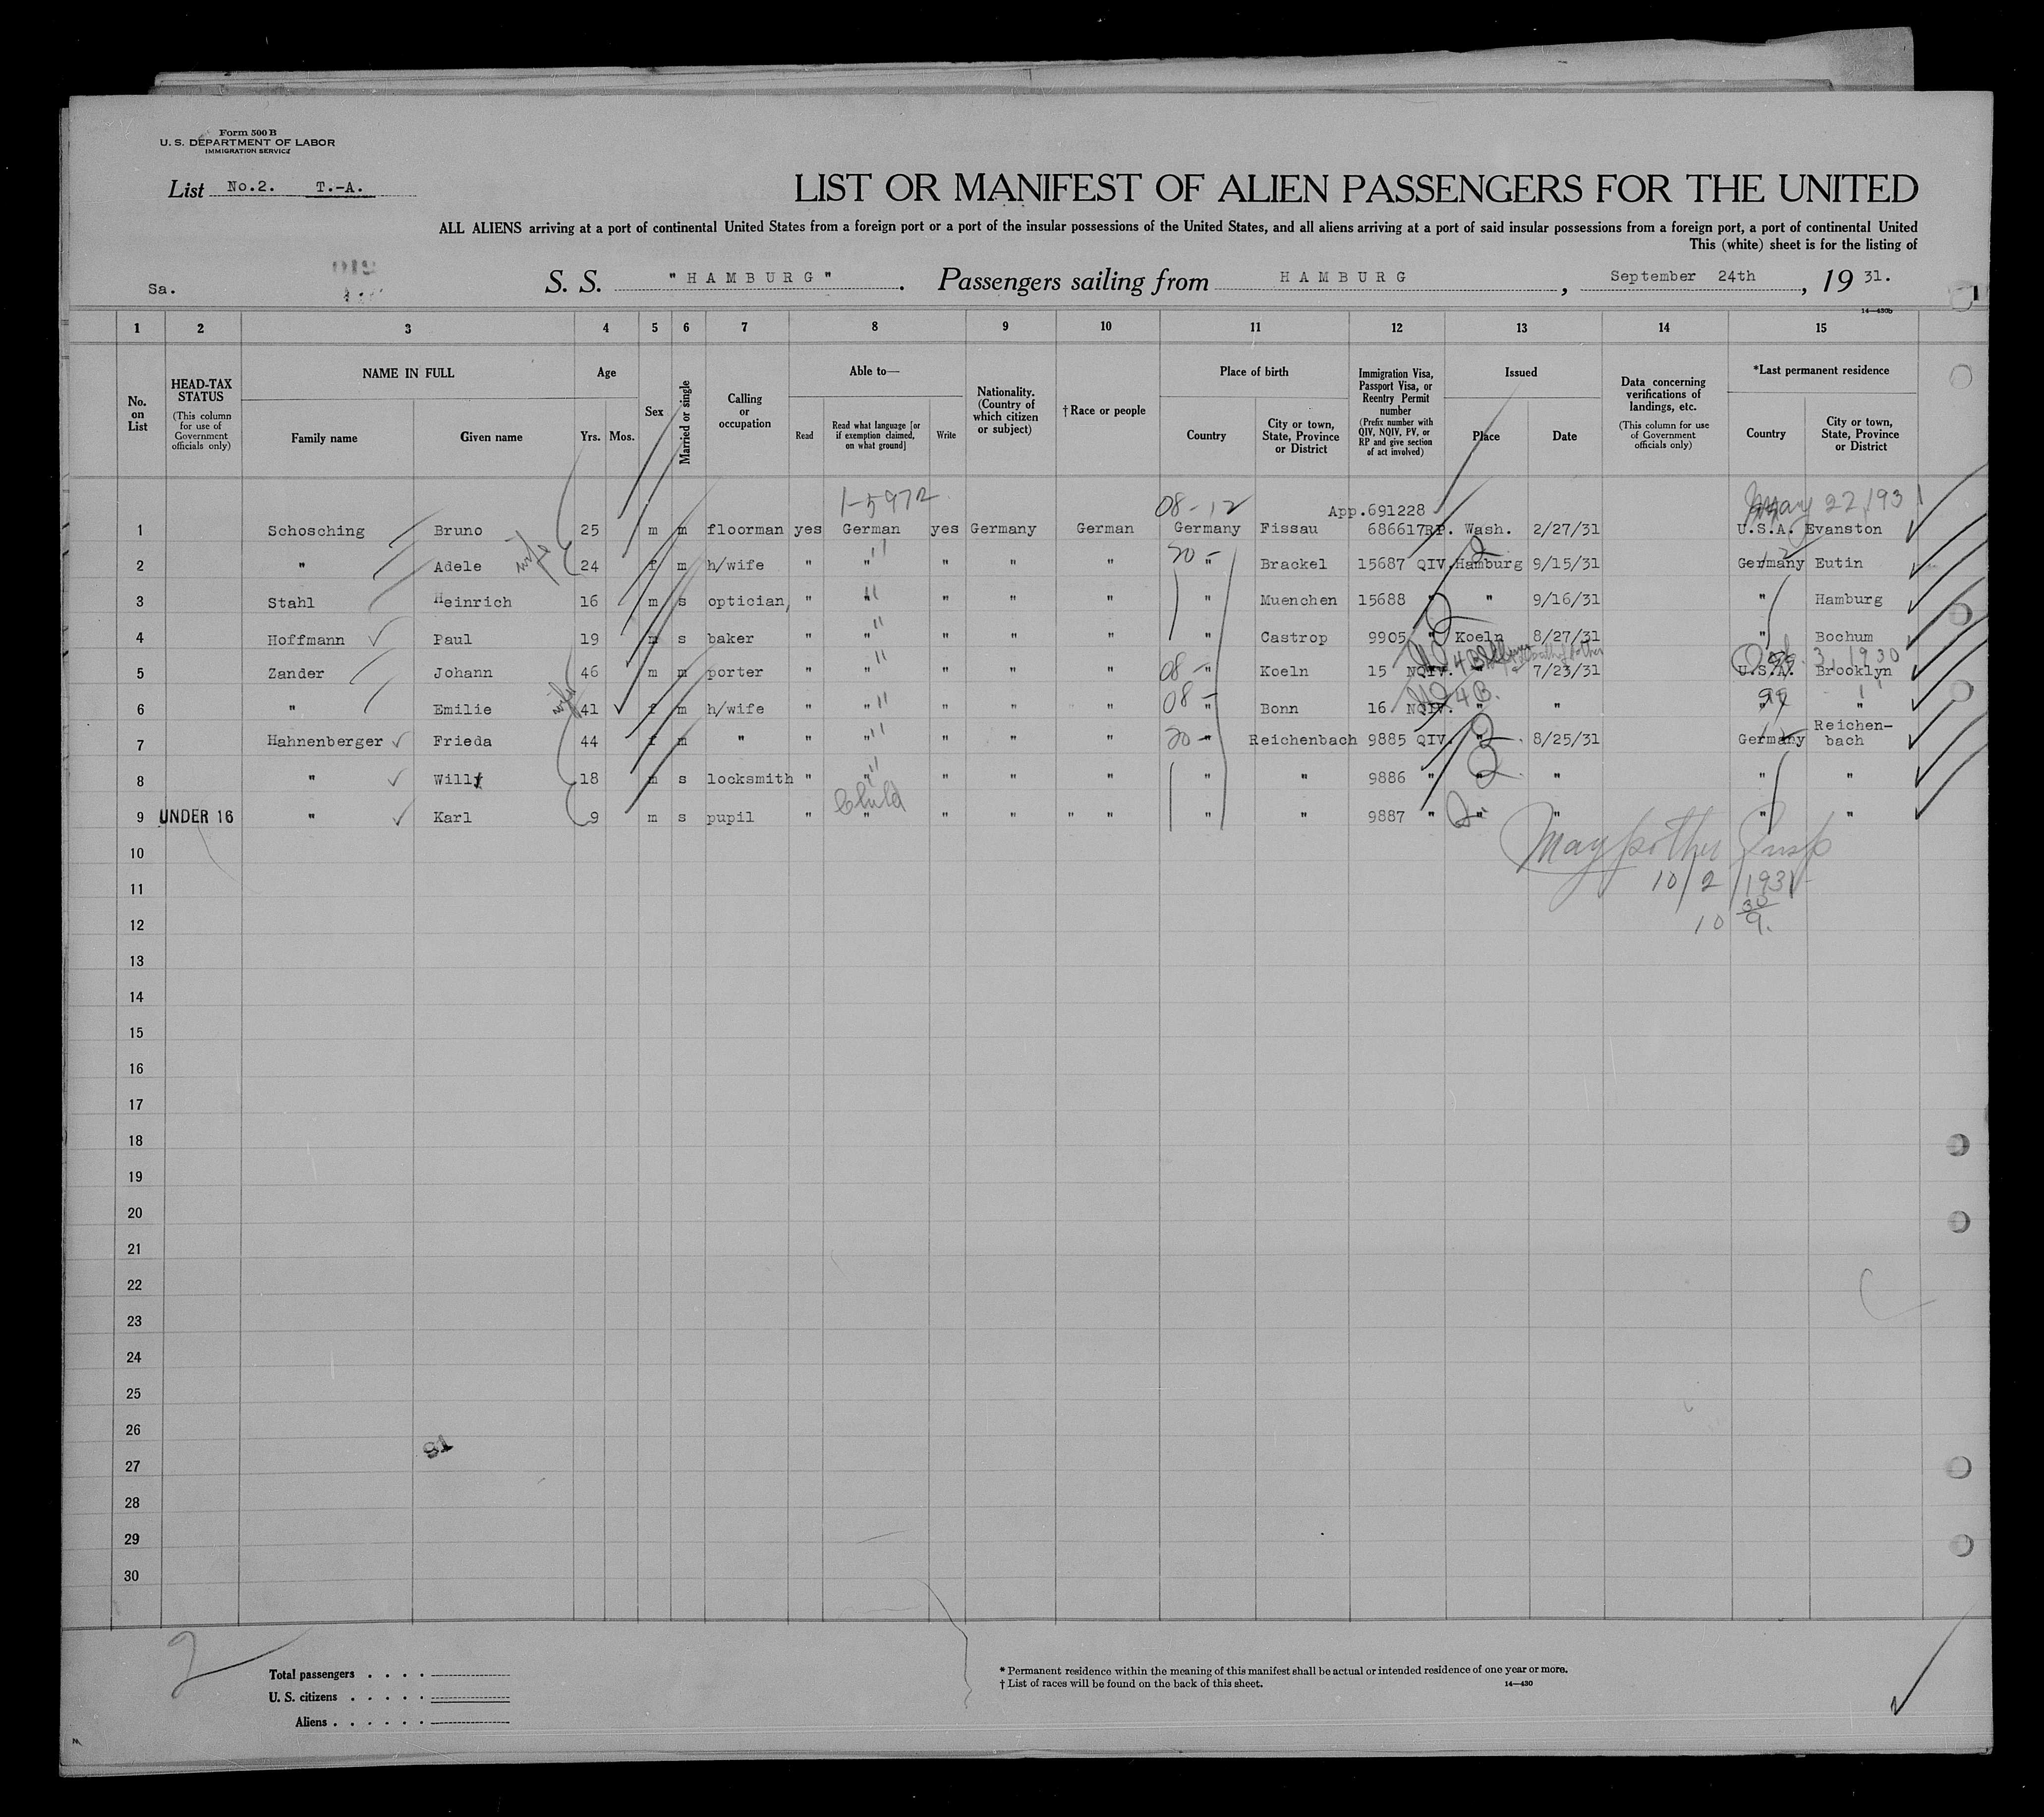 Form 500 B
U. S. DEPARTMENT OF LABOR
IMMIGRATION SERVICE
List No.2. T.-A.
LIST OR MANIFEST OF ALIEN PASSENGERS FOR THE UNITED
ALL ALIENS arriving at a port of continental United States from a foreign port or a port of the insular possessions of the United States, and all aliens arriving at a port of said insular possessions from a foreign port, a port of continental United
This (white) sheet is for the listing of
Sa. S. S. "HAMBURG". Passengers sailing from HAMBURG, September 24th, 19 31.
14—430b
1 2 3 4 5 6 7 8 9 10 11 12 13 14 15
No. on List
HEAD-TAX STATUS (This column for use of Government officials only)
NAME IN FULL Family name Given name
Age Yrs. Mos.
Sex
Married or single
Calling or occupation
Able to— Read Read what language [or if exemption claimed, on what ground] Write
Nationality. (Country of which citizen or subject)
† Race or people
Place of birth Country City or town, State, Province or District
Immigration Visa, Passport Visa, or Reentry Permit number (Prefix number with QIV, NQIV, PV, or RP and give section of act involved)
Issued Place Date
Data concerning verifications of landings, etc. (This column for use of Government officials only)
*Last permanent residence Country City or town, State, Province or District
1-5972 08-12 App.691228 May 22, 193
1 Schosching Bruno 25 m m floorman yes German yes Germany German Germany Fissau 686617RP. Wash. 2/27/31 U.S.A. Evanston
wife
2 " Adele 24 f m h/wife " " " " " 20- " Brackel 15687 QIV. Hamburg 9/15/31 Germany Eutin
3 Stahl Heinrich 16 m s optician, " " " " " " Muenchen 15688 " " 9/16/31 " Hamburg
4 Hoffmann Paul 19 m s baker " " " " " " Castrop 9905 " Koeln 8/27/31 " Bochum
3, 1930
5 Zander Johann 46 m m porter " " " " " 08- " Koeln 15 NQIV. 4B " 7/23/31 U.S.A. Brooklyn
wife
6 " Emilie 41 f m h/wife " " " " " 08- " Bonn 16 NQIV. 4B. " " " "
7 Hahnenberger Frieda 44 f m " " " " " " 20- " Reichenbach 9885 QIV. " 8/25/31 Germany Reichen-
bach
8 " Willy 18 m s locksmith " " " " " " " 9886 " " " " "
Child
9 UNDER 16 " Karl 9 m s pupil " " " " " " " " 9887 " " " " "
10 Maypother Insp
11 10/2/1931
12 10 30/9.
13
14
15
16
17
18
19
20
21
22
23
24
25
26
27
28
29
30
2
Total passengers . . . .
U. S. citizens . . . . .
Aliens . . . . . .
* Permanent residence within the meaning of this manifest shall be actual or intended residence of one year or more.
† List of races will be found on the back of this sheet. 14—430